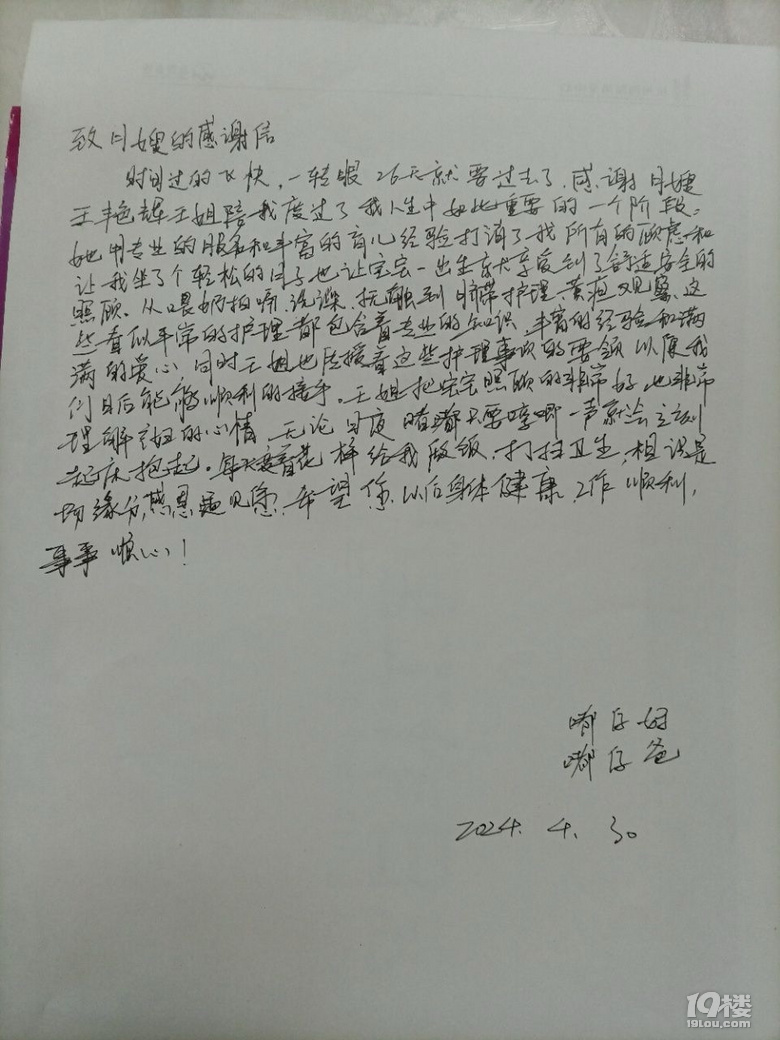 致月嫂的感谢信
时间过的飞快,一转眼26天就要过去了,感谢月嫂
王艳辉王姐陪我度过了我人生中如此重要的一个阶段。
她用专业的服务和丰富的育儿经验打消了我所有的顾虑和
让我坐了个轻松的月子也让宝宝一出生就享受到了舒适安全的
照顾。从喂奶拍嗝、洗澡、抚触到脐带护理、黄疸观察、这
些看似平常的护理都包含着专业的知识、丰富的经验和满
满的爱心,同时王姐也传授着这些护理事项的要领以便我
们日后能够顺利的接手。王姐把宝宝照顾的非常好也非常
理解产妇的心情,无论日夜嘟嘟只要哼唧一声就会立刻
起床抱起。每天变着花样给我做饭,打扫卫生,相识是
场缘分,感恩遇见您,希望您以后身体健康,工作顺利,
事事顺心!
嘟仔妈
嘟仔爸
2024. 4. 30
19楼
19lou.com